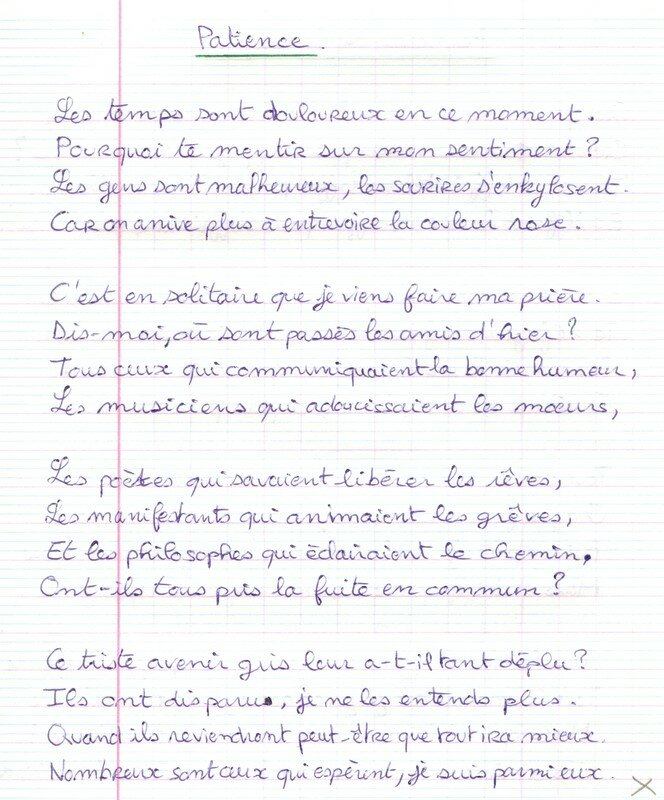 Patience.
Les temps sont douloureux en ce moment.
Pourquoi te mentir sur mon sentiment ?
Les gens sont malheureux, les sourires s'enkylosent.
Car on arrive plus à entrevoire la couleur rose.
C'est en solitaire que je viens faire ma prière.
Dis-moi, où sont passés les amis d'hier ?
Tous ceux qui communiquaient la bonne humeur,
Les musiciens qui adoucissaient les moeurs,
Les poètes qui savaient libérer les rêves,
Les manifestants qui animaient les grêves,
Et les philosophes qui éclairaient le chemin,
Ont-ils tous pris la fuite en commun ?
Ce triste avenir gris leur a-t-il tant déplu ?
Ils ont disparus, je ne les entends plus.
Quand ils reviendront peut-être que tout ira mieux.
Nombreux sont ceux qui espèrent, je suis parmi eux.